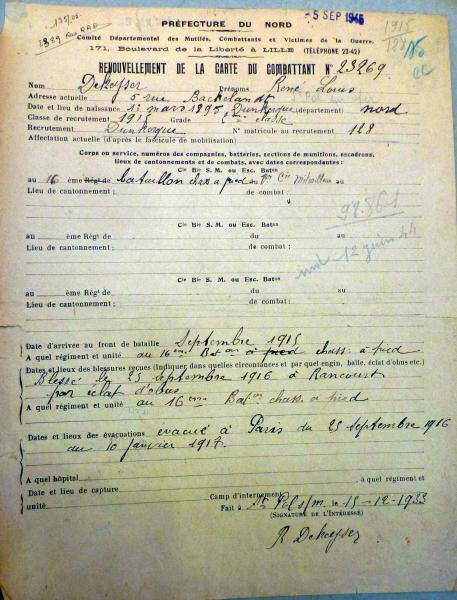 5 SEP 1945
PRÉFECTURE DU NORD
Comité Départemental des Mutilés, Combattants et Victimes de la Guerre.
171, Boulevard de la Liberté à LILLE (TÉLÉPHONE 23-42)
1915
128
RENOUVELLEMENT DE LA CARTE DU COMBATTANT N° 23269
Nom Dekeyser Prénoms René Louis
Adresse actuelle 5 rue Backelandt
Date et lieu de naissance 1er mars 1895 Dunkerque (département) nord
Classe de recrutement 1915 Grade 2ème classe
Recrutement Dunkerque N° matricule au recrutement 128
Affectation actuelle (d'après le fascicule de mobilisation)
Corps ou service, numéros des compagnies, batteries, sections de munitions, escadrons,
lieux de cantonnements et de combats, avec dates correspondantes :
Cie Bie S. M. ou Esc. Baton
au 16 ème Régt de bataillon chass a pied Cie au
Lieu de cantonnement : de combat :
97.861
Cie Bie S. M. ou Esc. Baton
au ème Régt de du au
Lieu de cantonnement : de combat :
12 juin 44
Cie Bie S. M. ou Esc. Baton
au ème Régt de du au
Lieu de cantonnement : de combat :
Date d'arrivée au front de bataille Septembre 1915
A quel régiment et unité au 16ème Bat on à pied chass. à pied
Dates et lieux des blessures reçues (Indiquer dans quelles circonstances et par quel engin, balle, éclat d'obus etc.)
Blessé le 25 septembre 1916 à Rancourt
par éclat d'obus
A quel régiment et unité au 16ème Bat on chass. à pied
Dates et lieux des évacuations evacué à Paris du 25 septembre 1916
au 10 janvier 1917.
A quel hôpital à quel régiment et
Date et lieu de capture
unité Camp d'internement
Fait à St Pol s/m. le 15-12-1933
(SIGNATURE DE L'INTÉRESSÉ)
R Dekeyser